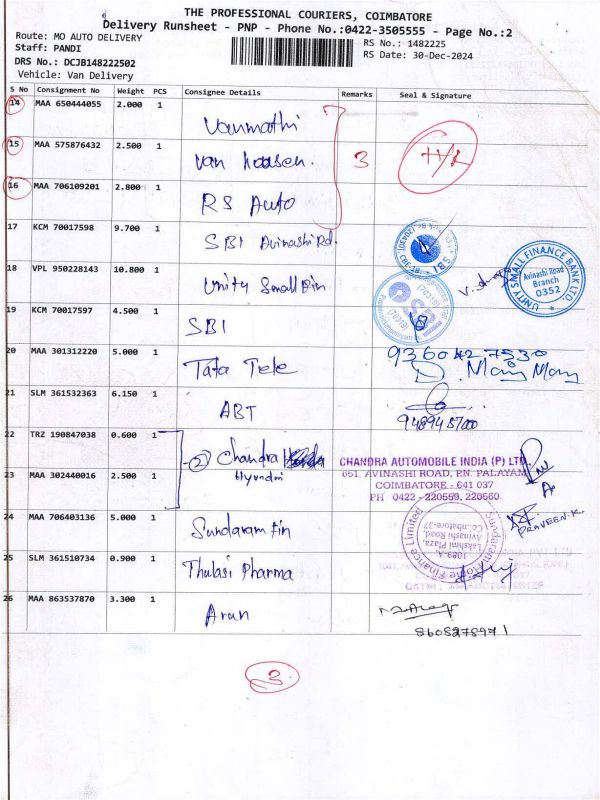 THE PROFESSIONAL COURIERS, COIMBATORE
Delivery Runsheet - PNP - Phone No.:0422-3505555 - Page No.:2
Route: MO AUTO DELIVERY
RS No.: 1482225
Staff: PANDI
RS Date: 30-Dec-2024
DRS No.: DCJB148222502
Vehicle: Van Delivery
S No Consignment No Weight PCS Consignee Details Remarks Seal & Signature
14 MAA 650444055 2.000 1 Vanmathi
15 MAA 575876432 2.500 1 Van 3
16 MAA 706109201 2.800 1 RS Auto
17 KCM 70017598 9.700 1 SBI Avinashi Rd.
18 VPL 950228143 10.800 1 Unity Small Fin
UNITY SMALL FINANCE BANK LTD.
Avinashi Road
Branch
0352
19 KCM 70017597 4.500 1 SBI
20 MAA 301312220 5.000 1 Tata Tele
9360427530
D. Mani Mary
21 SLM 361532363 6.150 1 ABT
22 TRZ 190847038 0.600 1 (2) Chandra
Hyundai
CHANDRA AUTOMOBILE INDIA (P) LTD.
651, AVINASHI ROAD, P.N. PALAYAM
COIMBATORE - 641 037
PH 0422 - 220559, 220560
23 MAA 302440016 2.500 1
PRAVEEN.K.
24 MAA 706403136 5.000 1 Sundaram Fin
Sundaram Home Finance Limited
1089-A,
Lakshmi Plaza,
Avinashi Road,
Coimbatore-37
25 SLM 361510734 0.900 1 Thulasi Pharma
26 MAA 863537870 3.300 1 Arun
3